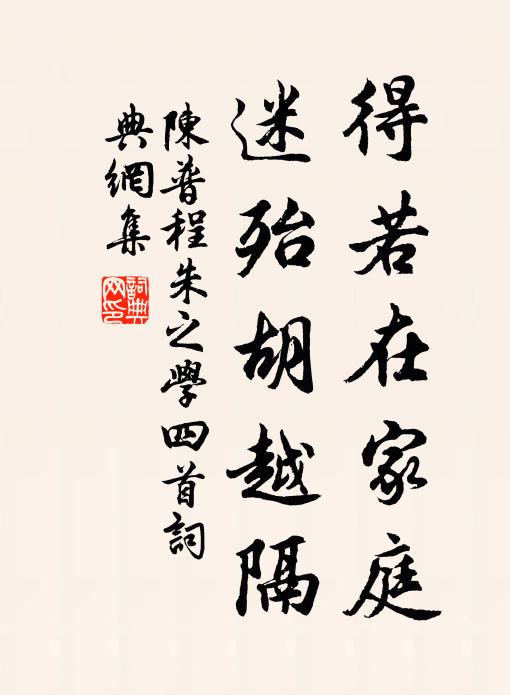 得若在家庭
迷殆胡越隔
陳普程朱之學四首詞
典網集
詞典
网印